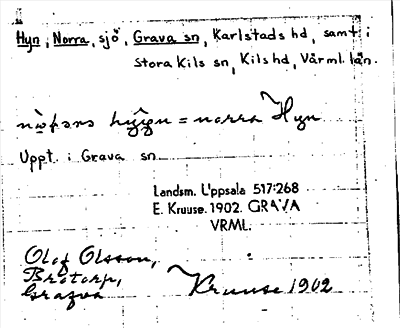 Hyn, Norra, sjö, Grava sn, Karlstads hd, samt i
Stora Kils sn, Kils hd, Värml. län.
= norra Hyn
Uppt. i Grava sn
Landsm. Uppsala 517:268
E. Kruuse. 1902. GRAVA
VRML.
Olof Olsson,
Brotorp,
Grafva
Kruuse 1902